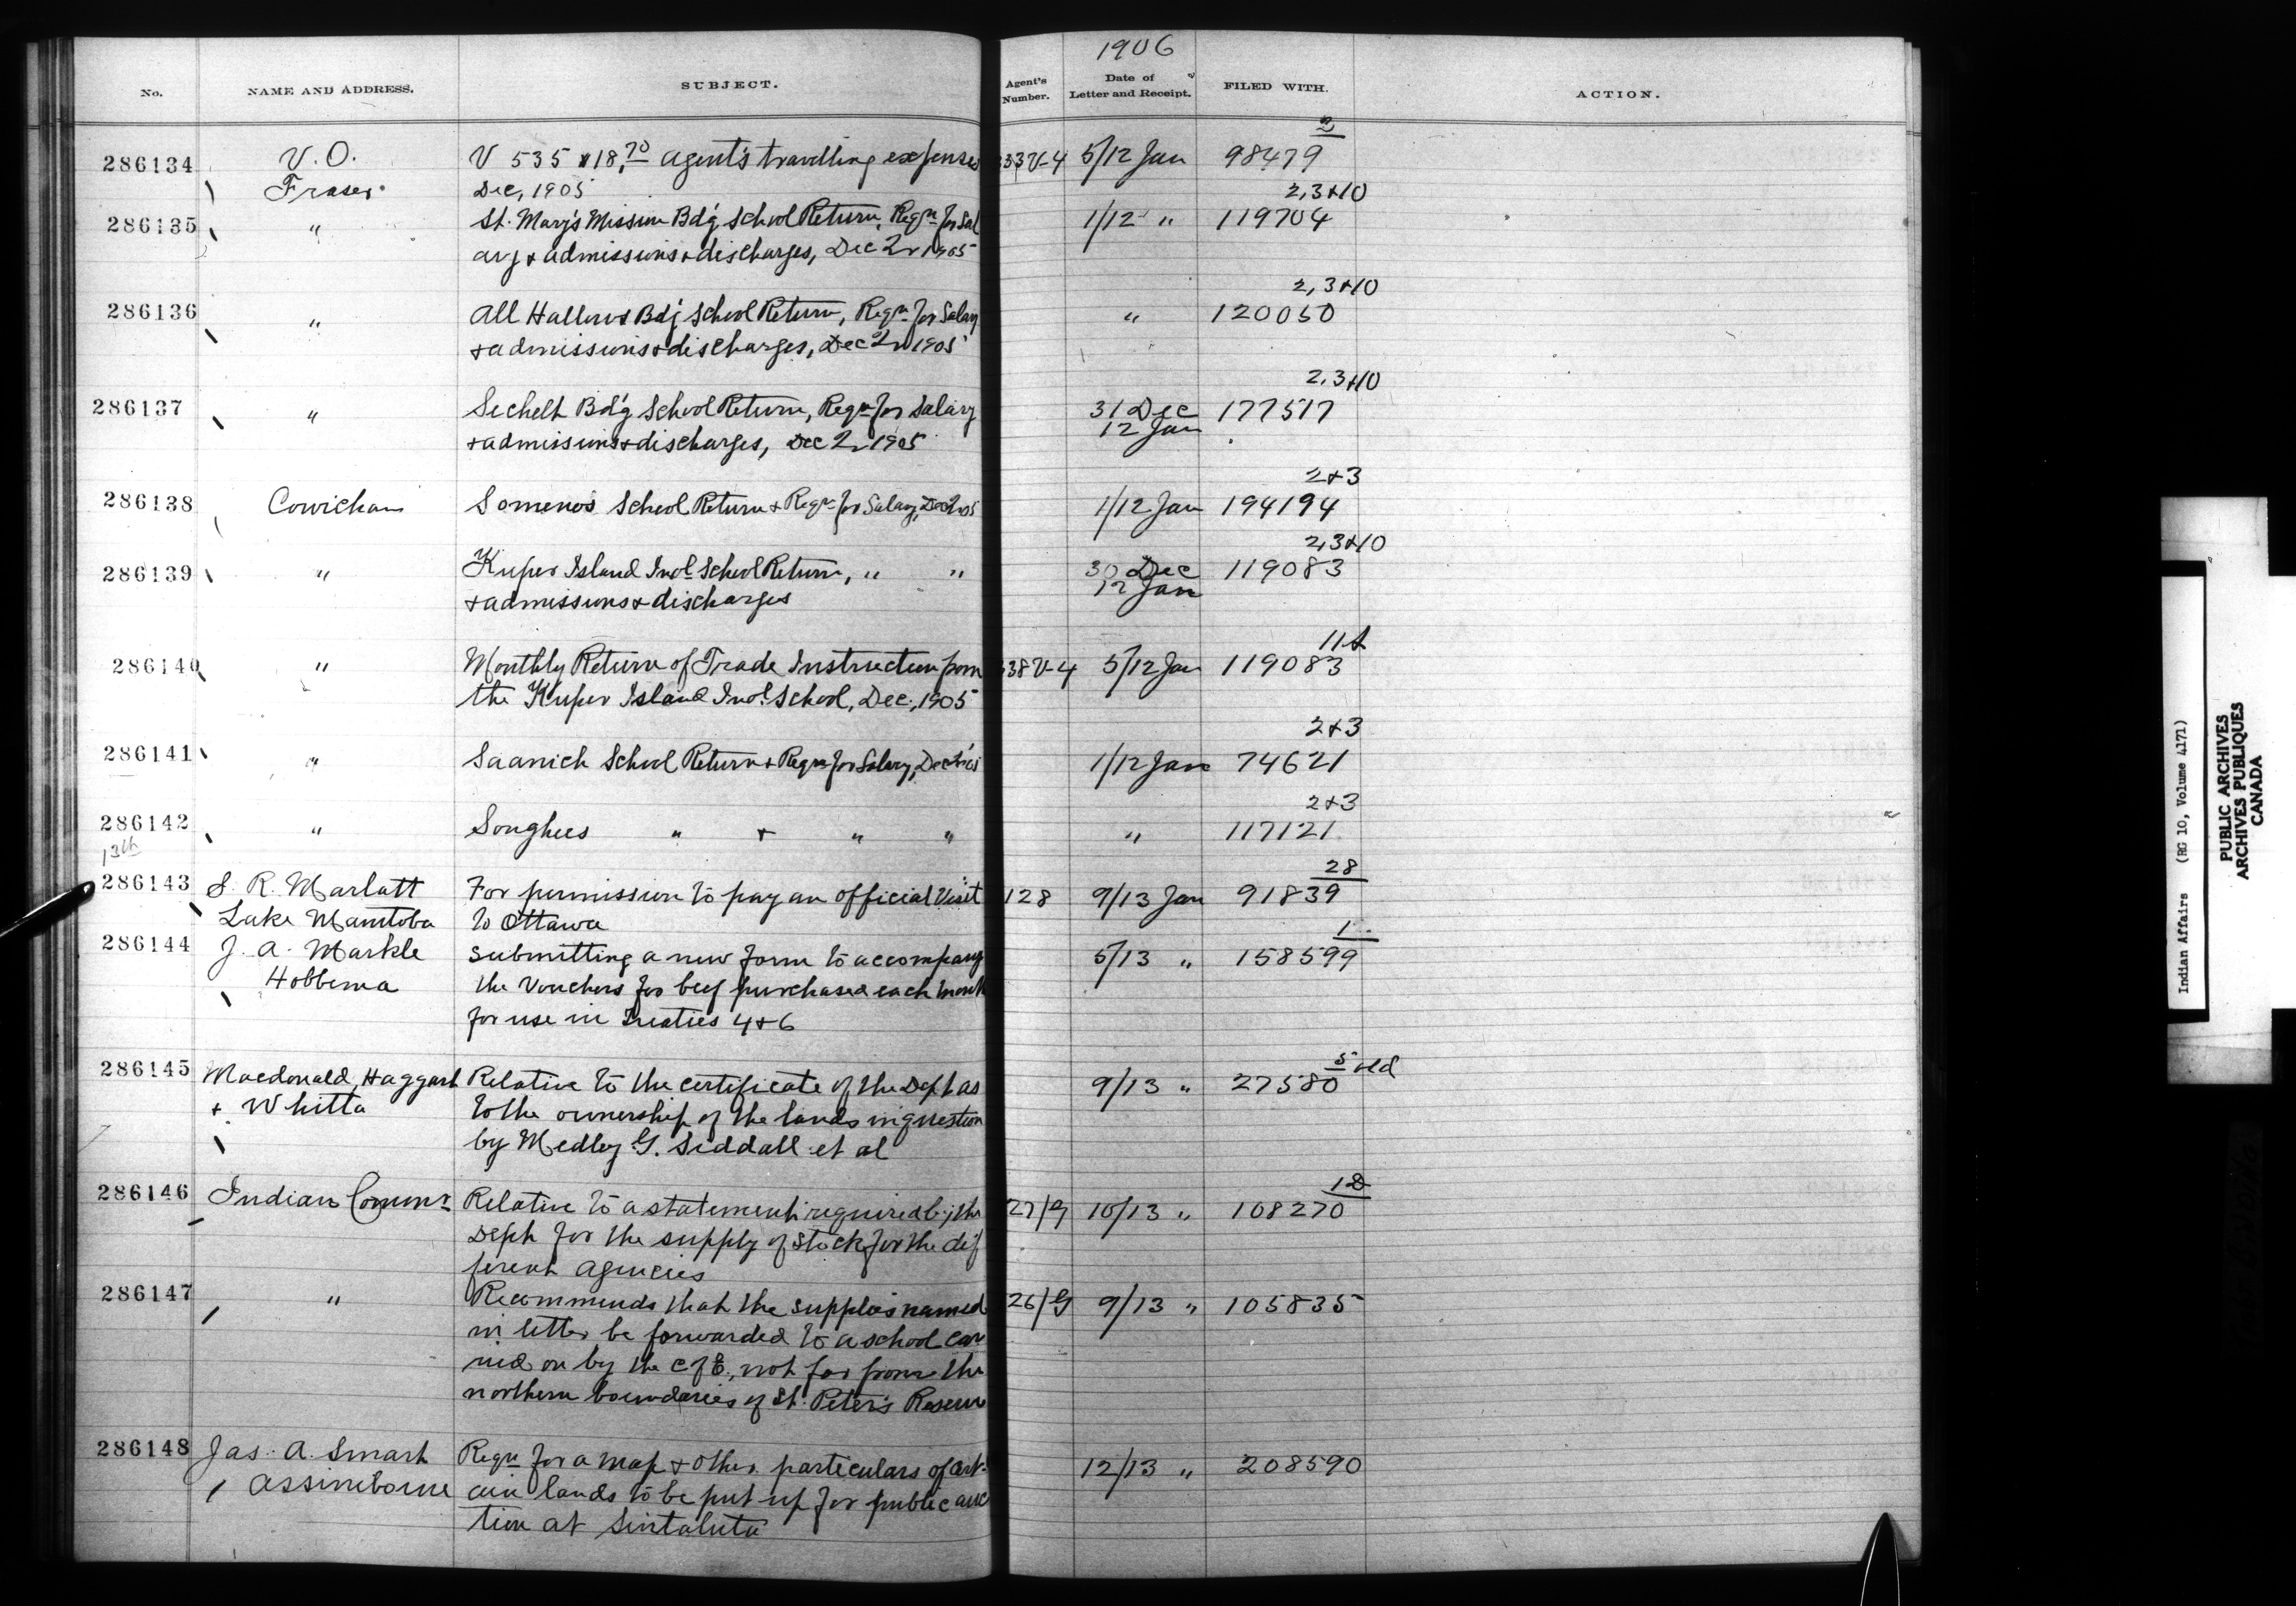 1906
No. NAME AND ADDRESS. SUBJECT. Agent's Number. Date of Letter and Receipt. FILED WITH. ACTION.
2
286134 V. O. V 535 $18.70 Agent's travelling expenses 333V-4 5/12 Jan 98479
Fraser Dec, 1905
2,3+10
286135 " St. Mary's Mission Bdg School Return, Reqn for Sal 1/12 " 119704
ary + admissions + discharges, Dec 2r 1905
2,3+10
286136 " All Hallows Bdg School Return, Reqn for Salary " 120050
+ admissions + discharges, Dec 2r 1905
2,3+10
286137 " Sechelt Bdg School Return, Reqn for Salary 31 Dec 177517
+ admissions + discharges, Dec 2r 1905 12 Jan
2+3
286138 Cowichan Somenos School Return + Reqn for Salary, Dec 2r 05 1/12 Jan 194194
2,3+10
286139 " Kuper Island Indl School Return, " " 30 Dec 119083
+ admissions + discharges 12 Jan
11A
286140 " Monthly Return of Trade Instruction from 338V-4 5/12 Jan 119083
the Kuper Island Indl School, Dec., 1905
2+3
286141 " Saanich School Return + Reqn for Salary, Dec 2r 05 1/12 Jan 74621
2+3
286142 " Songhees " + " " " 117121
13th
28
286143 S. R. Marlatt For permission to pay an official visit 128 9/13 Jan 91839
Lake Manitoba to Ottawa
1
286144 J. A. Markle Submitting a new form to accompany 5/13 " 158599
Hobbema the Vouchers for beef purchased each month
for use in Treaties 4+6
5 old
286145 Macdonald, Haggart Relative to the certificate of the Dept as 9/13 " 27580
+ Whitla to the ownership of the lands in question
by Medley G. Siddall et al
1D
286146 Indian Commr Relative to a statement required by the 27/G 10/13 " 108270
Dept for the supply of stock for the dif
ferent agencies
286147 " Recommends that the supplies named 26/G 9/13 " 105835
in letter be forwarded to a school car
ried on by the C of E., not far from the
northern boundaries of St. Peter's Reserve
286148 Jas. A. Smart Reqn for a map + other particulars of cert- 12/13 " 208590
Assiniboine ain lands to be put up for public auc
tion at Sintaluta
Indian Affairs (RG 10, Volume 4171)
PUBLIC ARCHIVES
ARCHIVES PUBLIQUES
CANADA